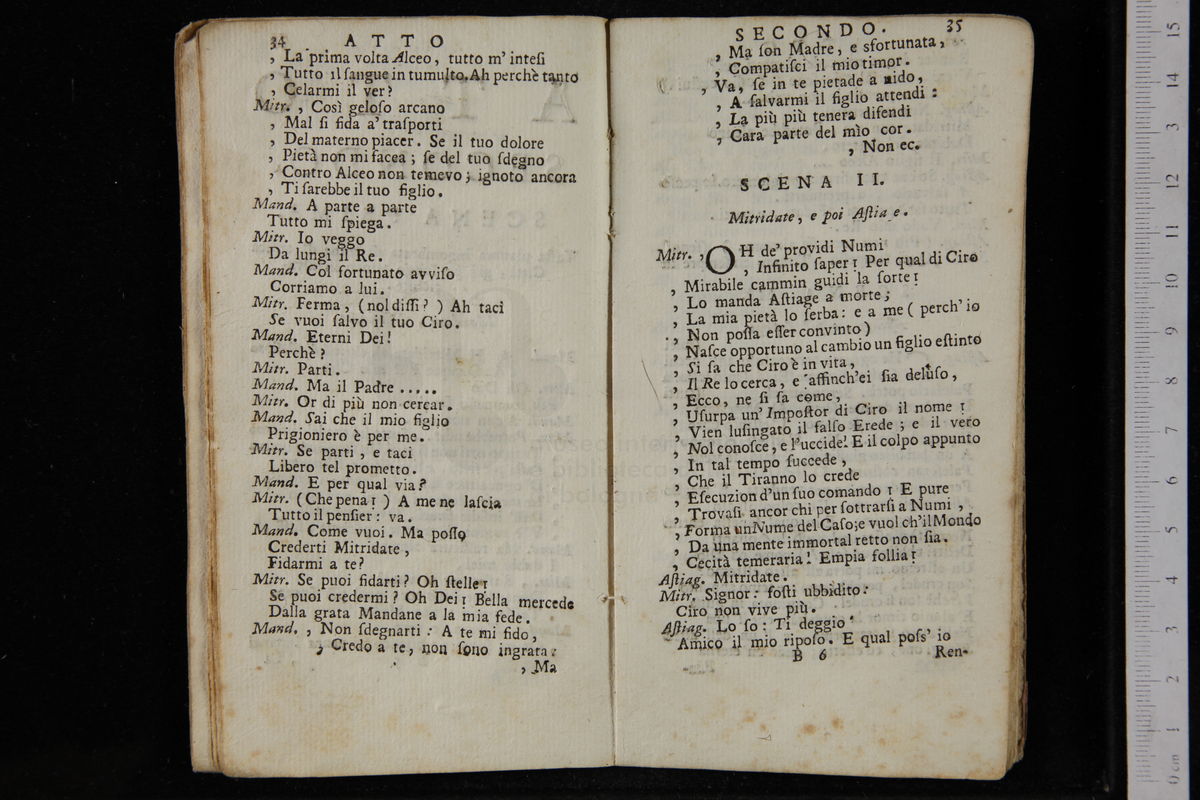 34 ATTO
, La prima volta Alceo, tutto m' inteſi
, Tutto il ſangue in tumulto. Ah perchè tanto
, Celarmi il ver?
Mitr. , Così geloſo arcano
, Mal ſi fida a' traſporti
, Del materno piacer. Se il tuo dolore
, Pietà non mi facea; ſe del tuo ſdegno
, Contro Alceo non temevo; ignoto ancora
, Ti ſarebbe il tuo figlio.
Mand. A parte a parte
Tutto mi ſpiega.
Mitr. Io veggo
Da lungi il Re.
Mand. Col fortunato avviſo
Corriamo a lui.
Mitr. Ferma, (nol diſſi?) Ah taci
Se vuoi ſalvo il tuo Ciro.
Mand. Eterni Dei!
Perchè?
Mitr. Parti.
Mand. Ma il Padre .....
Mitr. Or di più non cercar.
Mand. Sai che il mio figlio
Prigioniero è per me.
Mitr. Se parti, e taci
Libero tel prometto.
Mand. E per qual via?
Mitr. (Che pena!) A me ne laſcia
Tutto il penſier: va.
Mand. Come vuoi. Ma poſſo
Crederti Mitridate,
Fidarmi a te?
Mitr. Se puoi fidarti? Oh ſtelle!
Se puoi credermi? Oh Dei! Bella mercede
Dalla grata Mandane a la mia fede.
Mand. , Non ſdegnarti: A te mi fido,
, Credo a te, non ſono ingrata:
, Ma
SECONDO. 35
, Ma ſon Madre, e sfortunata,
, Compatiſci il mio timor.
, Va, ſe in te pietade a nido,
, A ſalvarmi il figlio attendi:
, La più più tenera difendi
, Cara parte del mio cor.
, Non ec.
SCENA II.
Mitridate, e poi Aſtia e.
Mitr. , OH de' providi Numi
, Infinito ſaper! Per qual di Ciro
, Mirabile cammin guidi la ſorte!
, Lo manda Aſtiage a morte;
, La mia pietà lo ſerba: e a me (perch' io
, Non poſſa eſſer convinto)
, Naſce opportuno al cambio un figlio eſtinto
, Si ſa che Ciro è in vita,
, Il Re lo cerca, e affinch'ei ſia deluſo,
, Ecco, ne ſi ſa come,
, Uſurpa un' Impoſtor di Ciro il nome!
, Vien luſingato il falſo Erede; e il vero
, Nol conoſce, e l'uccide! E il colpo appunto
, In tal tempo ſuccede,
, Che il Tiranno lo crede
, Eſecuzion d'un ſuo comando! E pure
, Trovaſi ancor chi per ſottrarſi a Numi,
, Forma un Nume del Caſo; e vuol ch'il Mondo
, Da una mente immortal retto non ſia.
, Cecità temeraria! Empia follia!
Aſtiag. Mitridate.
Mitr. Signor: foſti ubbidito:
Ciro non vive più.
Aſtiag. Lo ſo: Ti deggio
Amico il mio ripoſo. E qual poſs' io
B 6 Ren-